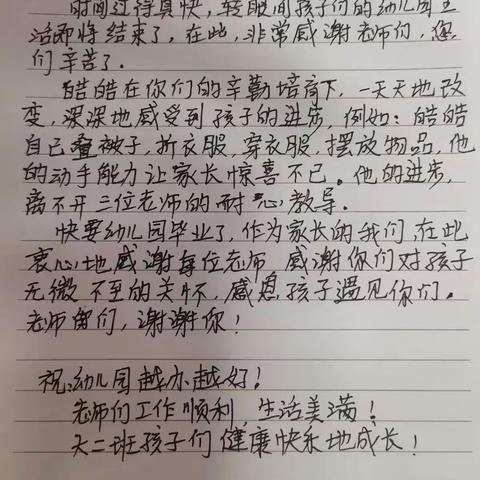 时间过得真快，转眼间孩子们的幼儿园生
活即将结束了，在此，非常感谢老师们，您
们辛苦了．
皓皓在你们的辛勤培育下，一天天地改
变，深深地感受到孩子的进步，例如：皓皓
自己叠被子，折衣服，穿衣服，摆放物品，他
的动手能力让家长惊喜不已。他的进步，
离不开三位老师的耐心教导．
快要幼儿园毕业了，作为家长的我们，在此
衷心地感谢每位老师 感谢你们对孩子
无微不至的关怀，感恩孩子遇见你们。
老师们，谢谢你！
祝幼儿园越办越好！
老师们工作顺利 生活美满！
大二班孩子们健康快乐地成长！